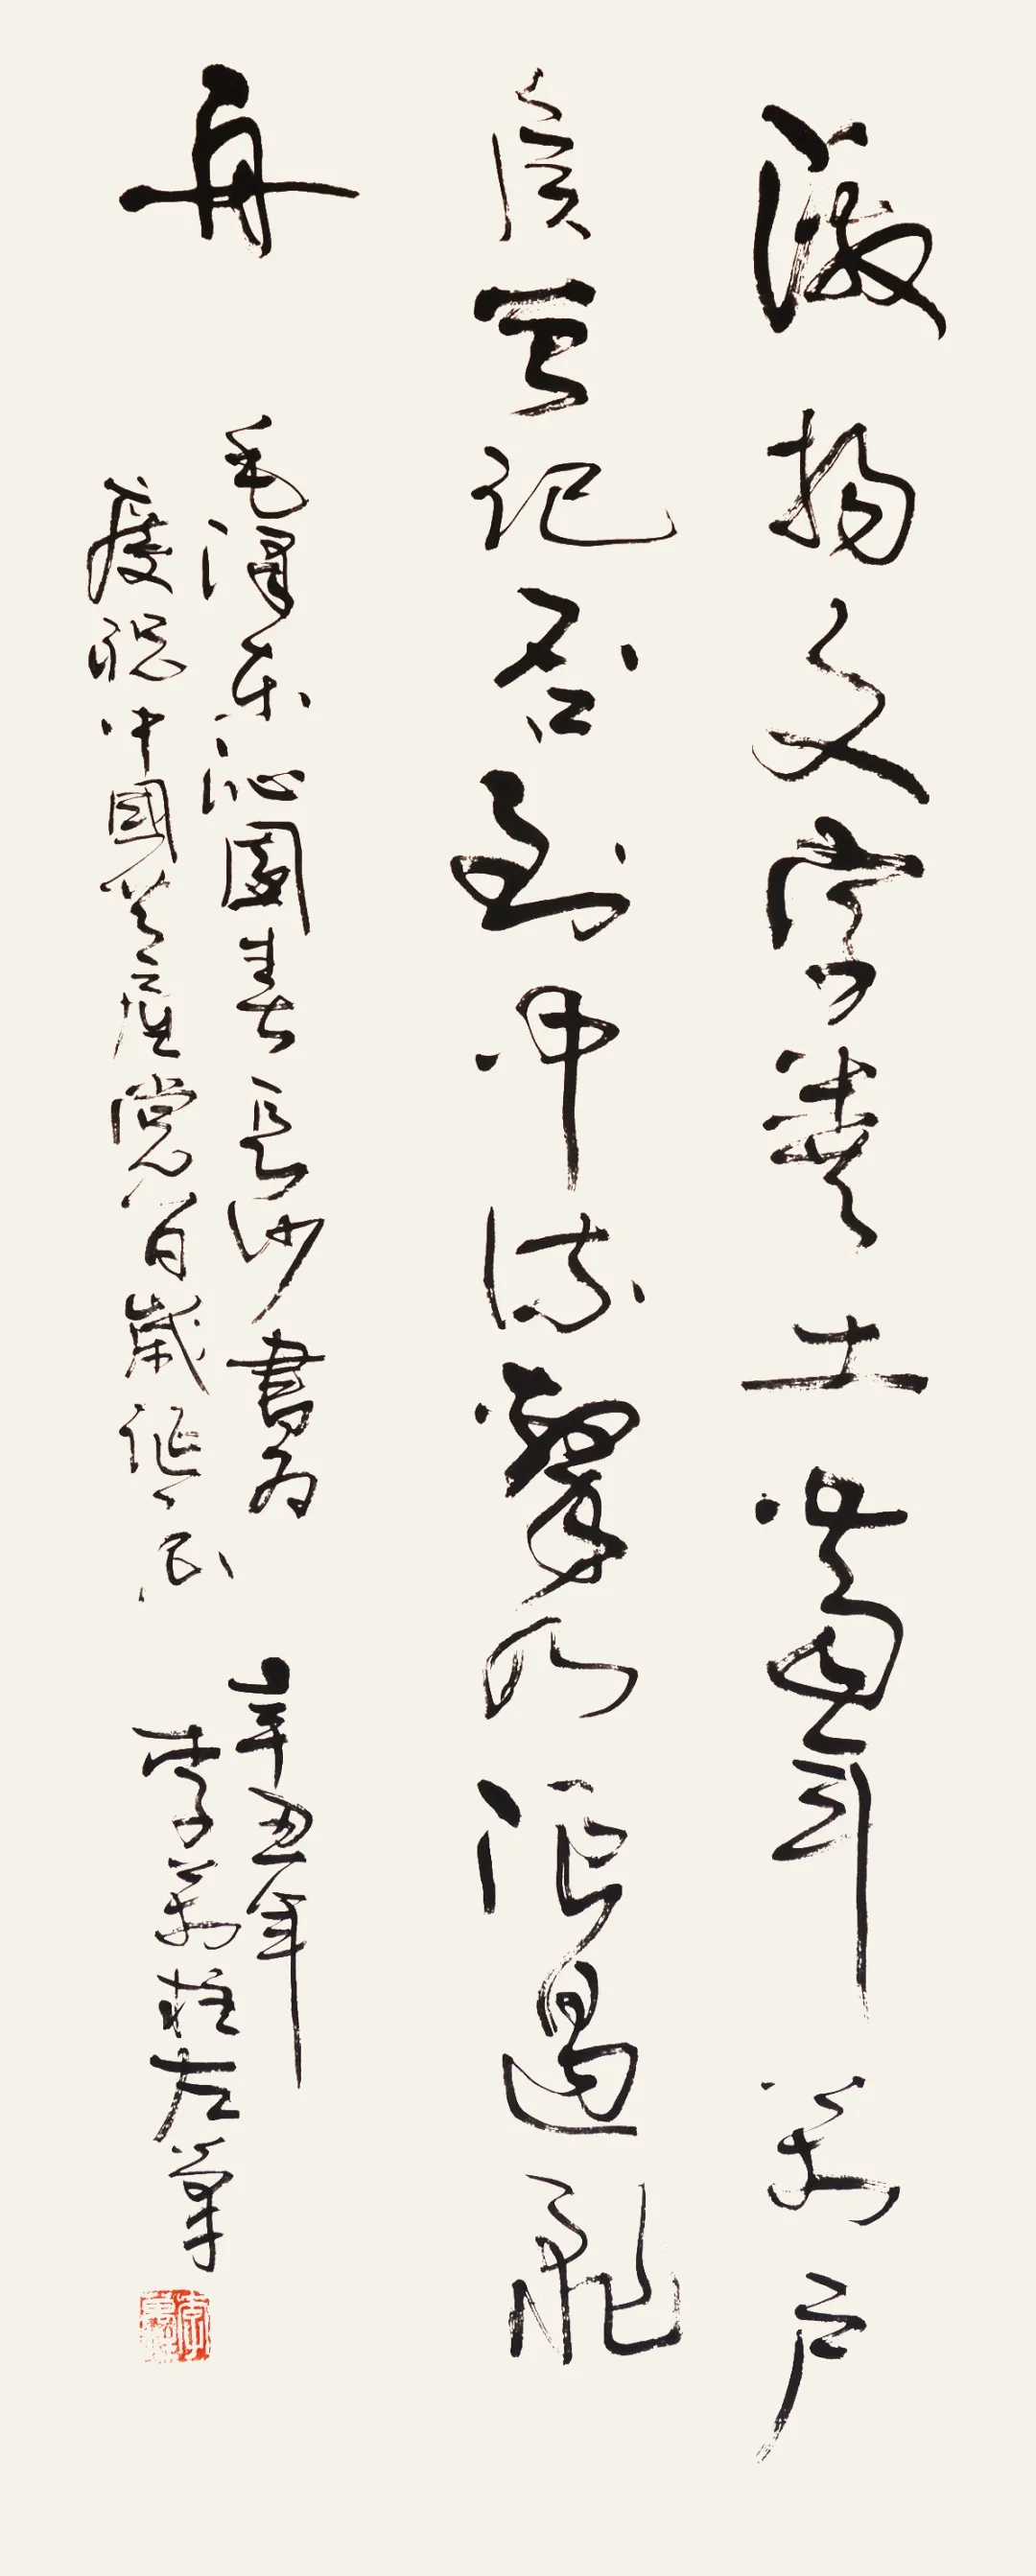 激揚文字糞土當年萬戶
侯曾記否到中流擊水浪遏飛
舟
毛澤東沁園春長沙書為
慶祝中國共產黨百歲誕辰
辛丑年
李萬柱左筆